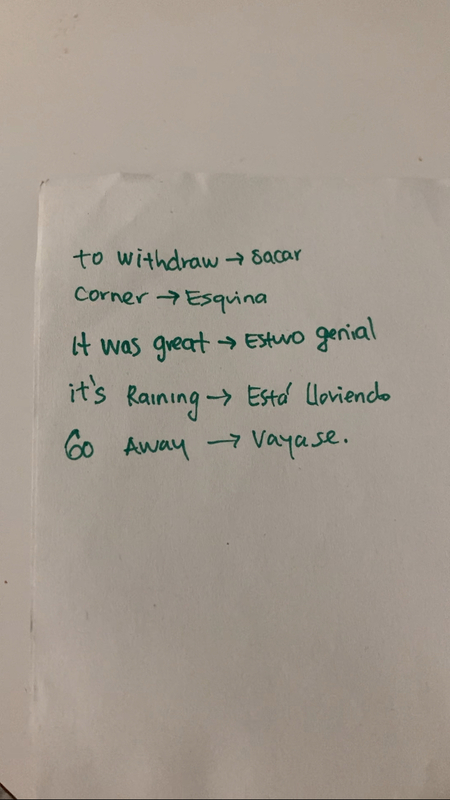 to withdraw → sacar
corner → Esquina
It was great → Estuvo genial
it's Raining → Está lloviendo
Go Away → Vayase.